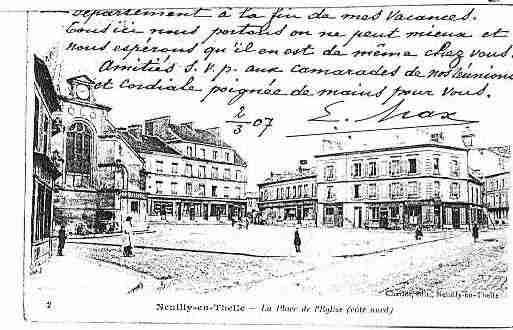 département à la fin de mes vacances.
Tous ici nous portons on ne peut mieux et
nous espérons qu'il en est de même chez vous.
Amitiés s. v. p. aux camarades de nos réunions
et cordiale poignée de mains pour vous.
2/3 07
Charles, édit., Neuilly-en-Thelle
2 Neuilly-en-Thelle — La Place de l'Eglise (côté nord)